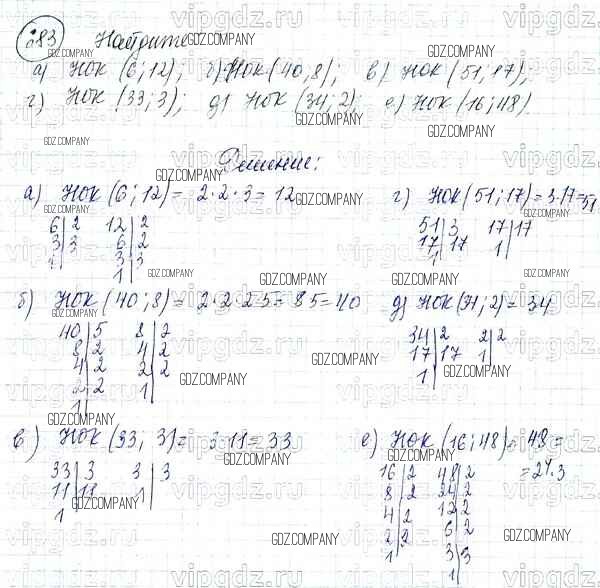 283 Найдите
а) НОК (6; 12); б) НОК (40, 8); в) НОК (51; 17);
г) НОК (33; 3); д) НОК (34; 2); е) НОК (16; 48).
Решение:
а) НОК (6; 12) = 2·2·3 = 12
6|2 12|2
3|3 6|2
1| 3|3
1|
г) НОК (51; 17) = 3·17 = 51
51|3 17|17
17|17 1|
1|
б) НОК (40; 8) = 2·2·2·5 = 8·5 = 40
40|5 8|2
8|2 4|2
4|2 2|2
2|2 1|
1|
д) НОК (34; 2) = 34
34|2 2|2
17|17 1|
1|
в) НОК (33; 3) = 3·11 = 33
33|3 3|3
11|11 1|
1
е) НОК (16; 48) = 48 =
= 2⁴·3
16|2 48|2
8|2 24|2
4|2 12|2
2|2 6|2
1| 3|3
1|
GDZ.COMPANY
vipgdz.ru